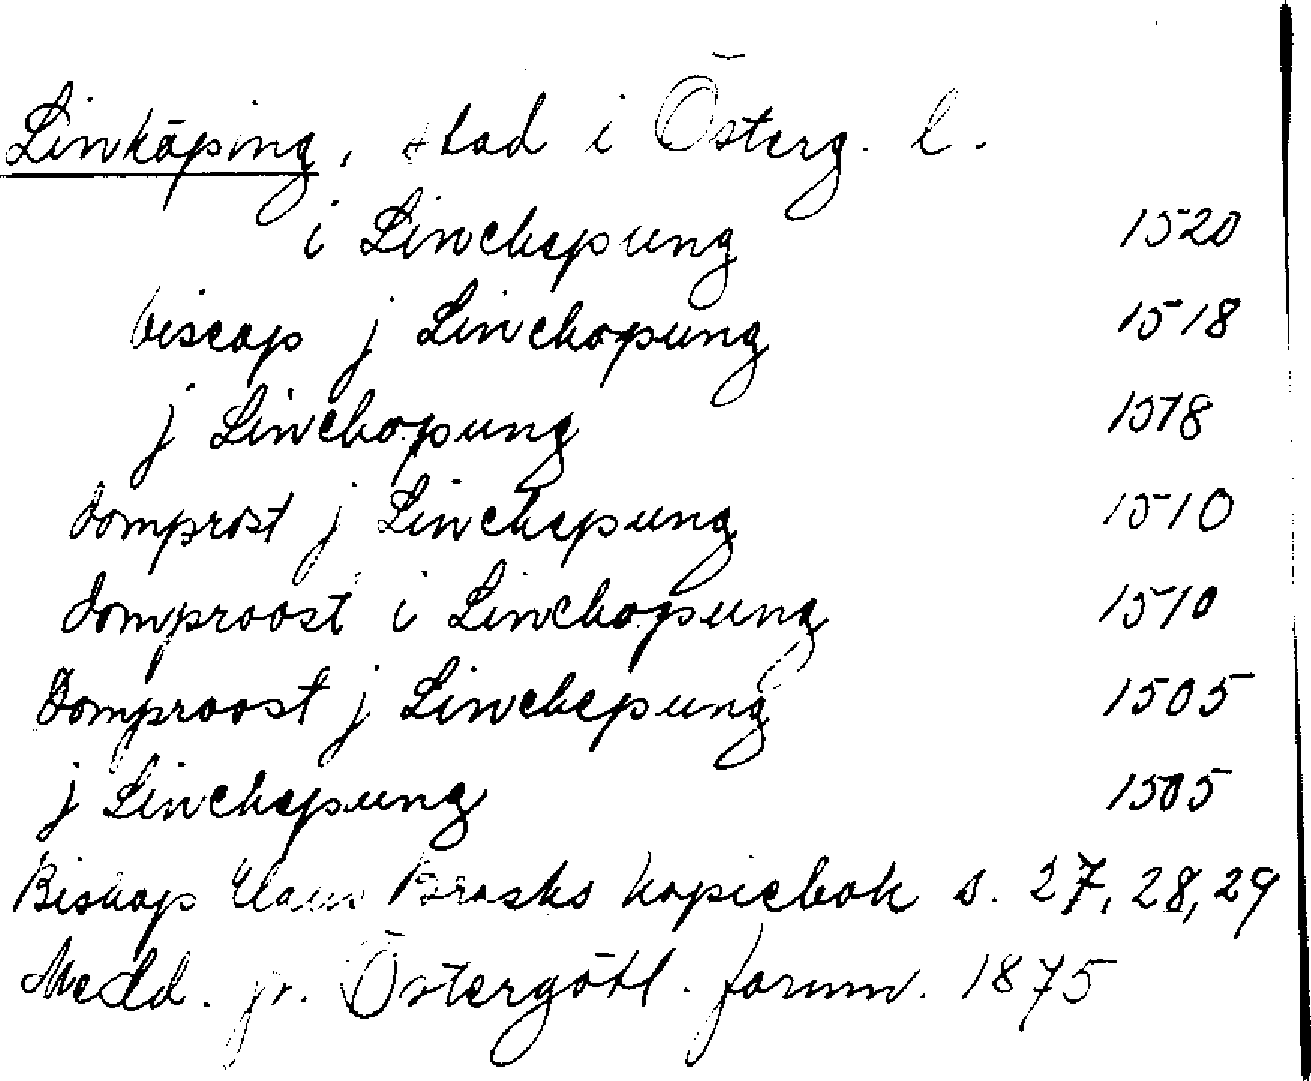 Linköping, stad i Österg. l.
i Linchepung 1520
biscop j Linchopung 1518
j Linchopung 1518
domprost j Linchepung 1510
domproost i Linchopung 1510
Domproost j Linchepung 1505
j Linchepung 1505
Biskop Hans Brasks kopiebok s. 27, 28, 29
Medd. fr. Östergötl. fornm. 1875